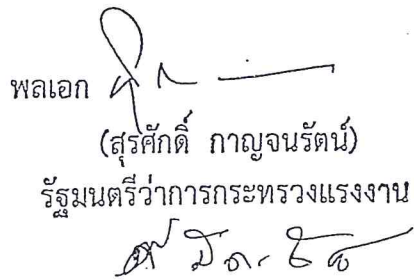 พลเอก
(สุรศักดิ์ กาญจนรัตน์)
รัฐมนตรีว่าการกระทรวงแรงงาน